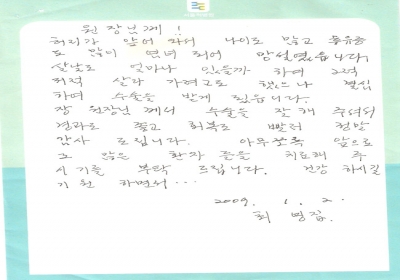 원장님께!
허리가 않어 파서 나이도 많고 통유증
도 많이 염녀 되어 망설였습니다.
살날도 얼마나 있을까 하며 그럭
저럭 살다 가려고도 했으나 결심
하여 수술을 받게 됬읍니다.
장 원장님 께서 수술을 잘 해 주셔서
결과도 좋고 회복도 빨러 정말
감사 드립니다. 아무쪼록 앞으로
도 많은 환자 들을 치료해 주
시기를 부탁 드립니다. 건강 하시길
기원 하면서...
2009. 1. 2.
최 명집.